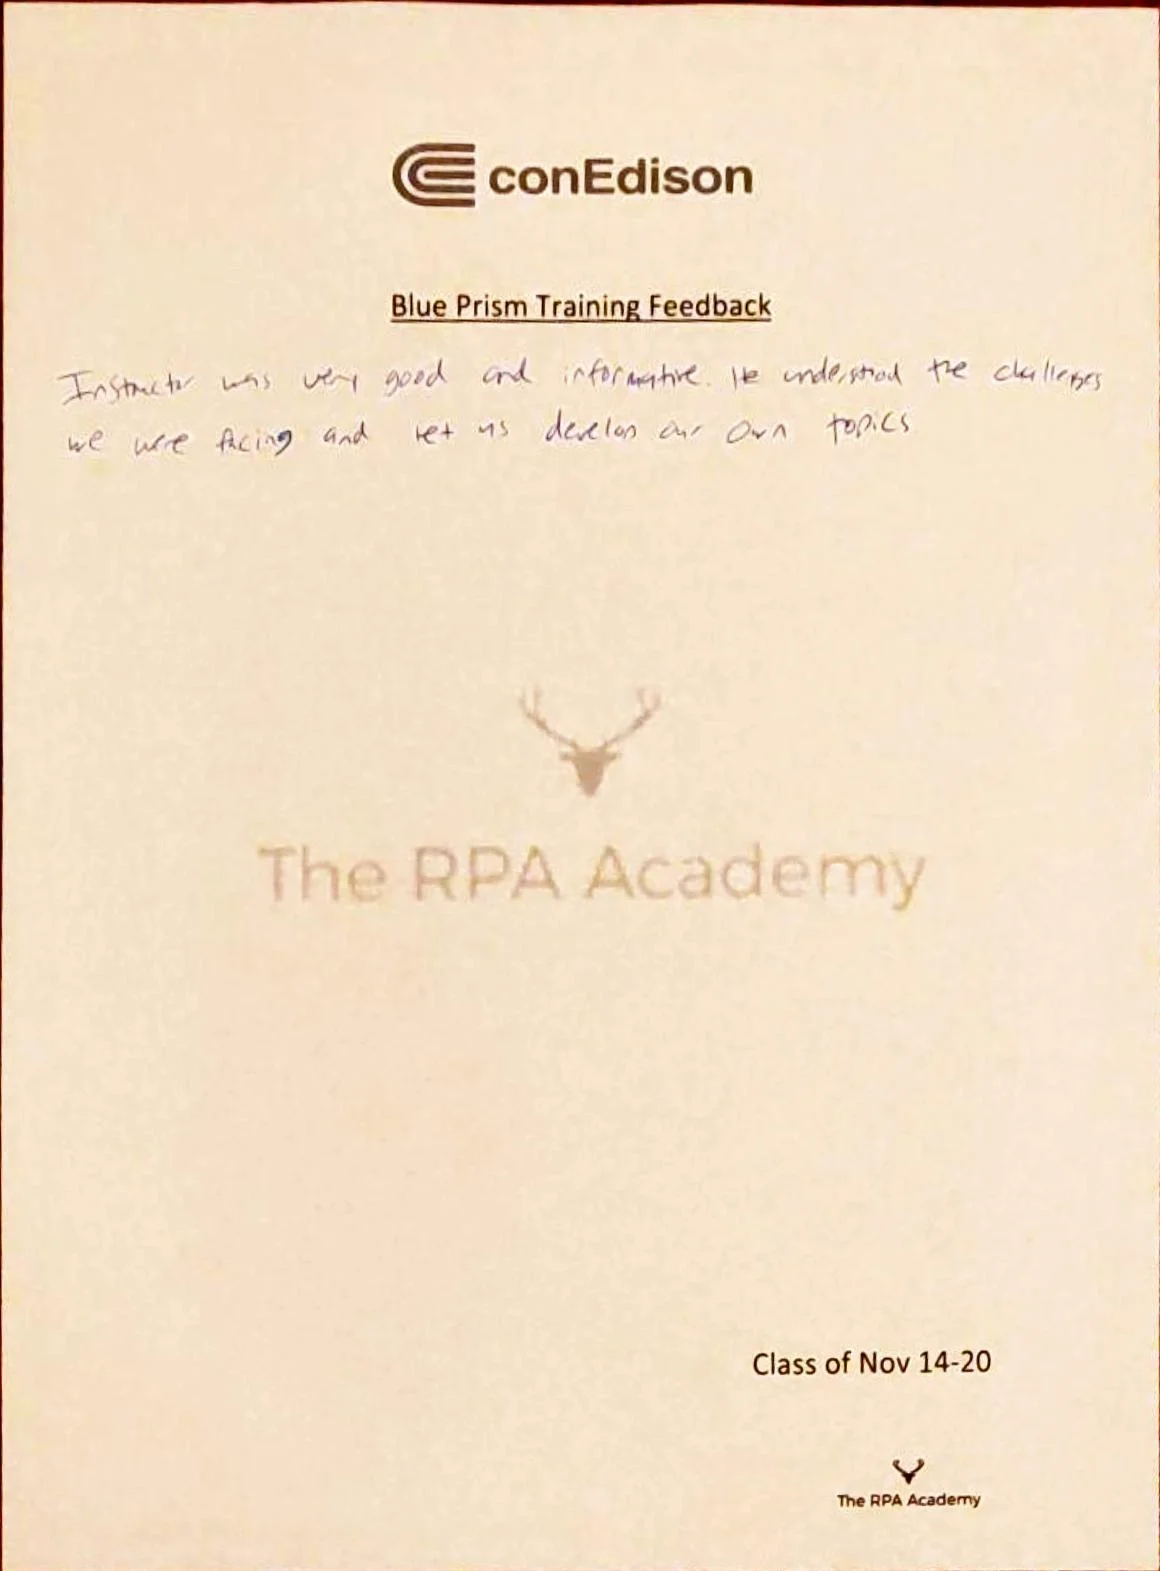 conEdison
Blue Prism Training Feedback
Instructor was very good and informative. He understood the challenges
we were facing and let us develop our own topics
The RPA Academy
Class of Nov 14-20
The RPA Academy